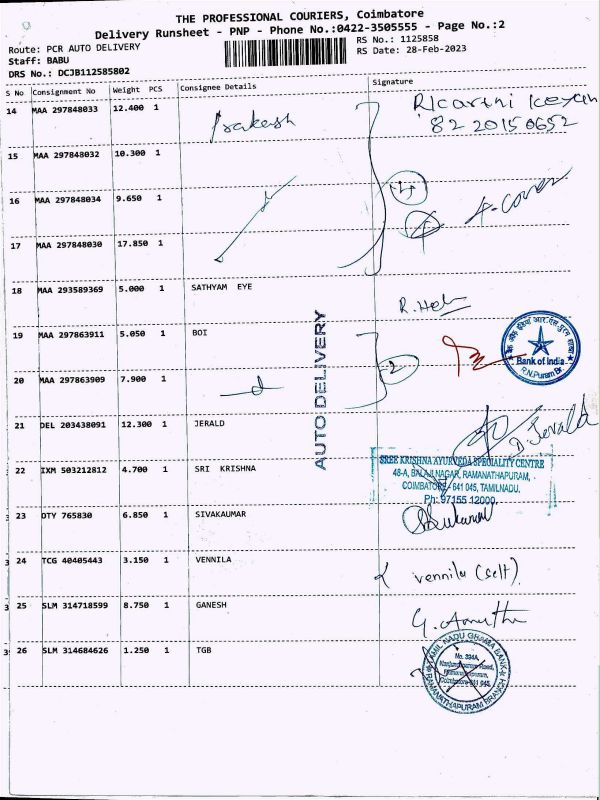 THE PROFESSIONAL COURIERS, Coimbatore
Delivery Runsheet - PNP - Phone No.:0422-3505555 - Page No.:2
Route: PCR AUTO DELIVERY
RS No.: 1125858
Staff: BABU
RS Date: 28-Feb-2023
DRS No.: DCJB112585802
S No Consignment No Weight PCS Consignee Details Signature
14 MAA 297848033 12.400 1 Prakash
82 20150652
15 MAA 297848032 10.300 1
16 MAA 297848034 9.650 1
4
17 MAA 297848030 17.850 1
18 MAA 293589369 5.000 1 SATHYAM EYE
19 MAA 297863911 5.050 1 BOI
Bank of India
R.N.Puram Br.
2
20 MAA 297863909 7.900 1
AUTO DELIVERY
21 DEL 203438091 12.300 1 JERALD
D. Jerald
22 IXM 503212812 4.700 1 SRI KRISHNA
SREE KRISHNA AYURVEDA SPECIALITY CENTRE
48-A, BALAJI NAGAR, RAMANATHAPURAM,
COIMBATORE - 641 045, TAMILNADU.
Ph: 97155 12000
23 OTY 765830 6.850 1 SIVAKUMAR
24 TCG 40405443 3.150 1 VENNILA
vennila (self)
25 SLM 314718599 8.750 1 GANESH
26 SLM 314684626 1.250 1 TGB
TAMIL NADU GRAMA BANK
RAMANATHAPURAM BRANCH
No. 394A,
Coimbatore-641 045